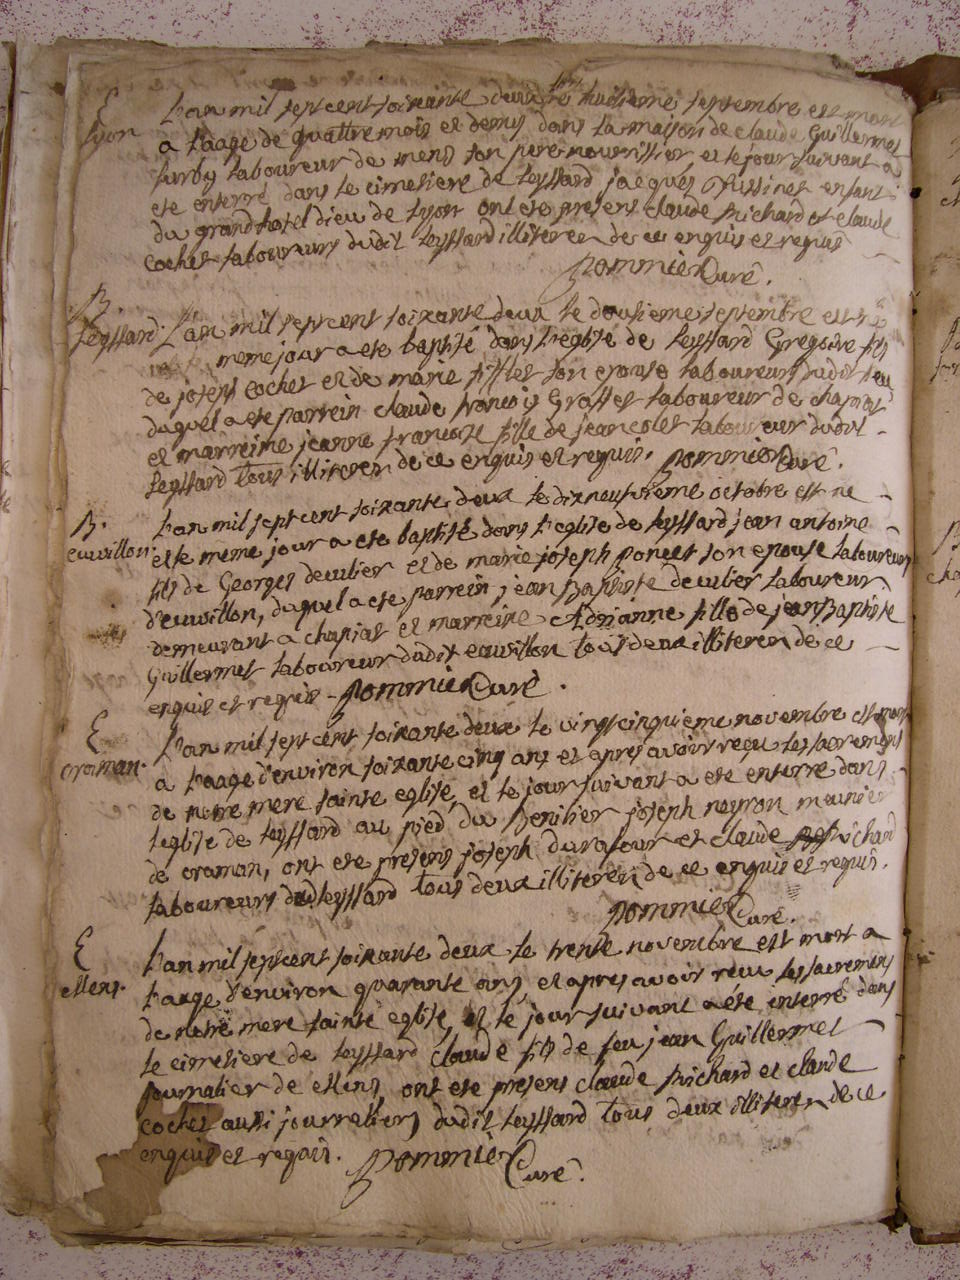 E
Lyon
L'an mil sept cent soixante deux le huitieme septembre est mort
a l'aage de quattre mois et demis dans la maison de claude Guillermet
furby laboureur de mens son pere nourrissier et le jour suivant a
ete enterré dans le cimetiere de leyssard jacques enfant
du grand hotel dieu de Lyon ont ete presens claude Richard et claude
cochet laboureurs dudit leyssard illiteren de ce enquis et requis
pommier Curé.
B.
Leyssard.
L'an mil sept cent soixante deux le dousieme septembre est né
meme jour a ete baptisé dans l'eglise de leyssard Gregoire fils
de joseph cochet et de marie pifflet son epouse laboureurs dudit lieu
duquel a ete parrein claude francois Grasset laboureur de chapiat
et marreine jeanne francoise fille de jean colet laboureur dudit
Leyssard tous illiteren de ce enquis et requis. pommier Curé.
B.
euvillon.
L'an mil sept cent soixante deux le dix neufvieme octobre est ne
et le même jour a ete baptisé dans l'eglise de leyssard jean antoine
fils de Georges decullier et de marie joseph poncet son epouse laboureurs
d'euvillon, duquel a ete parrein jean Baptiste decullier laboureur
demeurant a chapiat et marreine Adrianne fille de jean Baptiste
Guillermet laboureur dudit euvillon tous deux illiteren de ce
enquis et requis - pommier Curé.
E
craman.
L'an mil sept cent soixante deux le vingtcinquieme novembre est mort
à l'aage d'environ soixante cinq ans et apres avoir reçu les sacremens
de notre mere sainte eglise, et le jour suivant a ete enterré dans
l'eglise de leyssard au pied du Benitier joseph neyron meunier
de craman, ont ete presens joseph durafour et claude Richard
laboureurs dud leyssard tous deux illiteren de ce enquis et requis.
pommier Curé.
E
ellens.
L'an mil sept cent soixante deux le trente novembre est mort a
l'aage d'environ quarante ans, et apres avoir recu les sacremens
de notre mere sainte eglise, et le jour suivant a été enterré dans
le cimetiere de leyssard Claude fils de feu jean Guillermet
journalier de ellens, ont ete presens claude Richard et claude
cochet aussi journaliers dudit leyssard tous deux illiteren de ce
enquis et requis. pommier Curé.